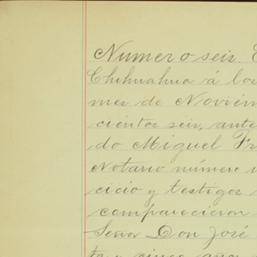 Numero seis. E
Chihuahua á los
mes de Noviem
cientos seis, ante
do Miguel Fr
Notario número
cicio y testigos
comparecieron
Señor Don José
ta y cinco años